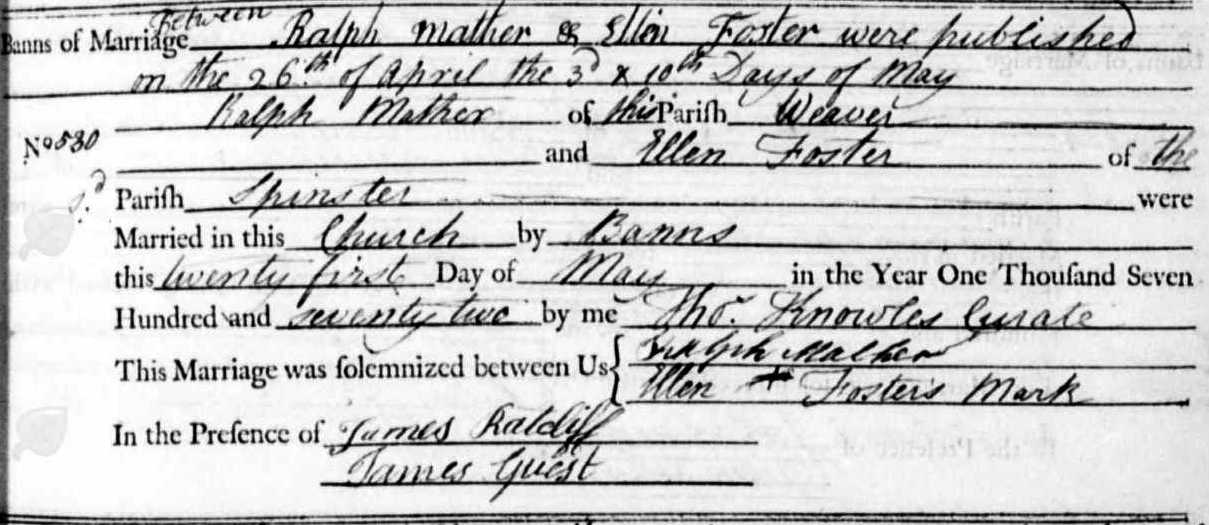 Banns of Marriage Between Ralph Mather & Ellen Foster were published
on the 26th of April the 3d & 10th Days of May
No 530 Ralph Mather of this Pariſh Weaver
and Ellen Foster of the
sd. Pariſh Spinster were
Married in this Church by Banns
this twenty first Day of May in the Year One Thouſand Seven
Hundred and seventy two by me Tho.s Knowles Curate
This Marriage was ſolemnized between Us { Ralph Mather
Ellen + Fosters Mark
In the Preſence of James Ratcliff
James Guest